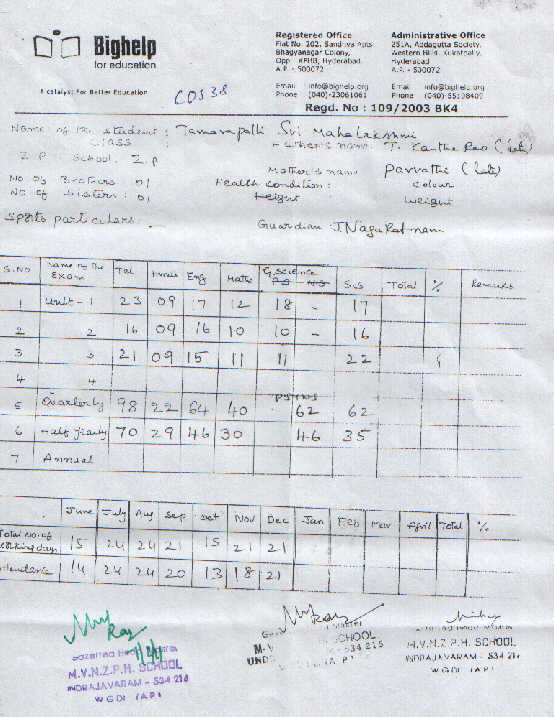 Bighelp
for education
A catalyst For Better Education
Registered Office
Flat No 202, Sandhya Apts
Bhagyanagar Colony,
Opp KPHB, Hyderabad
A.P. - 500072
Email info@bighelp.org
Phone (040)-23061061
Administrative Office
251A, Addagutta Society,
Western Hills, Kukatpally,
Hyderabad
A.P. - 500072
Email info@bighelp.org
Phone (040)-55108409
Regd. No : 109/2003 BK4
COS38
Name of the student : Tamarapalli Sri Mahalakshmi
Class
Father's name T. Kantha Rao (late)
Z.P. School. Z.p
Mother's name Parvathi (late)
No of Brothers : 01 Health condition : colour
No of Sisters : 01 Height weight
Sports particulars :
Guardian J. Naga Ratnam
S.NO Name of the Exam Tel Hindi Eng Maths G.Science P.S N.S S.S Total % Remarks
1 Unit - 1 23 09 17 12 18 - 17
2 2 16 09 16 10 10 - 16
3 3 21 09 15 11 11 22
4 4
5 Quarterly 98 22 64 40 PS+NS 62 62
6 Half yearly 70 29 46 30 46 35
7 Annual
June July Aug Sep Oct Nov Dec Jan Feb Mar April Total %
Total No. of working days 15 24 24 21 15 21 21
Attendance 14 24 24 20 13 18 21
M.V.N.Z.P.H. SCHOOL
INDRAJAVARAM - 534 216
W.G.Dt. (A.P.)
SCHOOL
534 216
M.V.N.Z.P.H. SCHOOL
INDRAJAVARAM - 534 216
W.G.Dt. (A.P.)